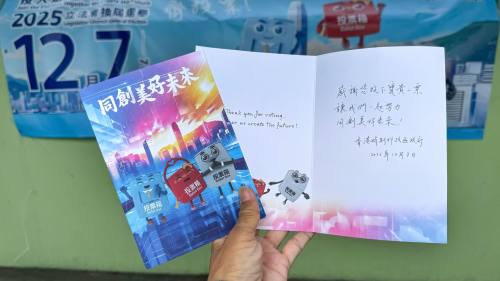 2025
立法會換屆選舉
12月7
投票箱
Ballot Box
同創美好未來
投票箱
Ballot Box
投票箱
Ballot Box
Thank you for voting
create the future!
感謝您投下寶貴一票
讓我們一起努力
同創美好未來！
香港特別行政區政府
2025年12月7日
投票箱